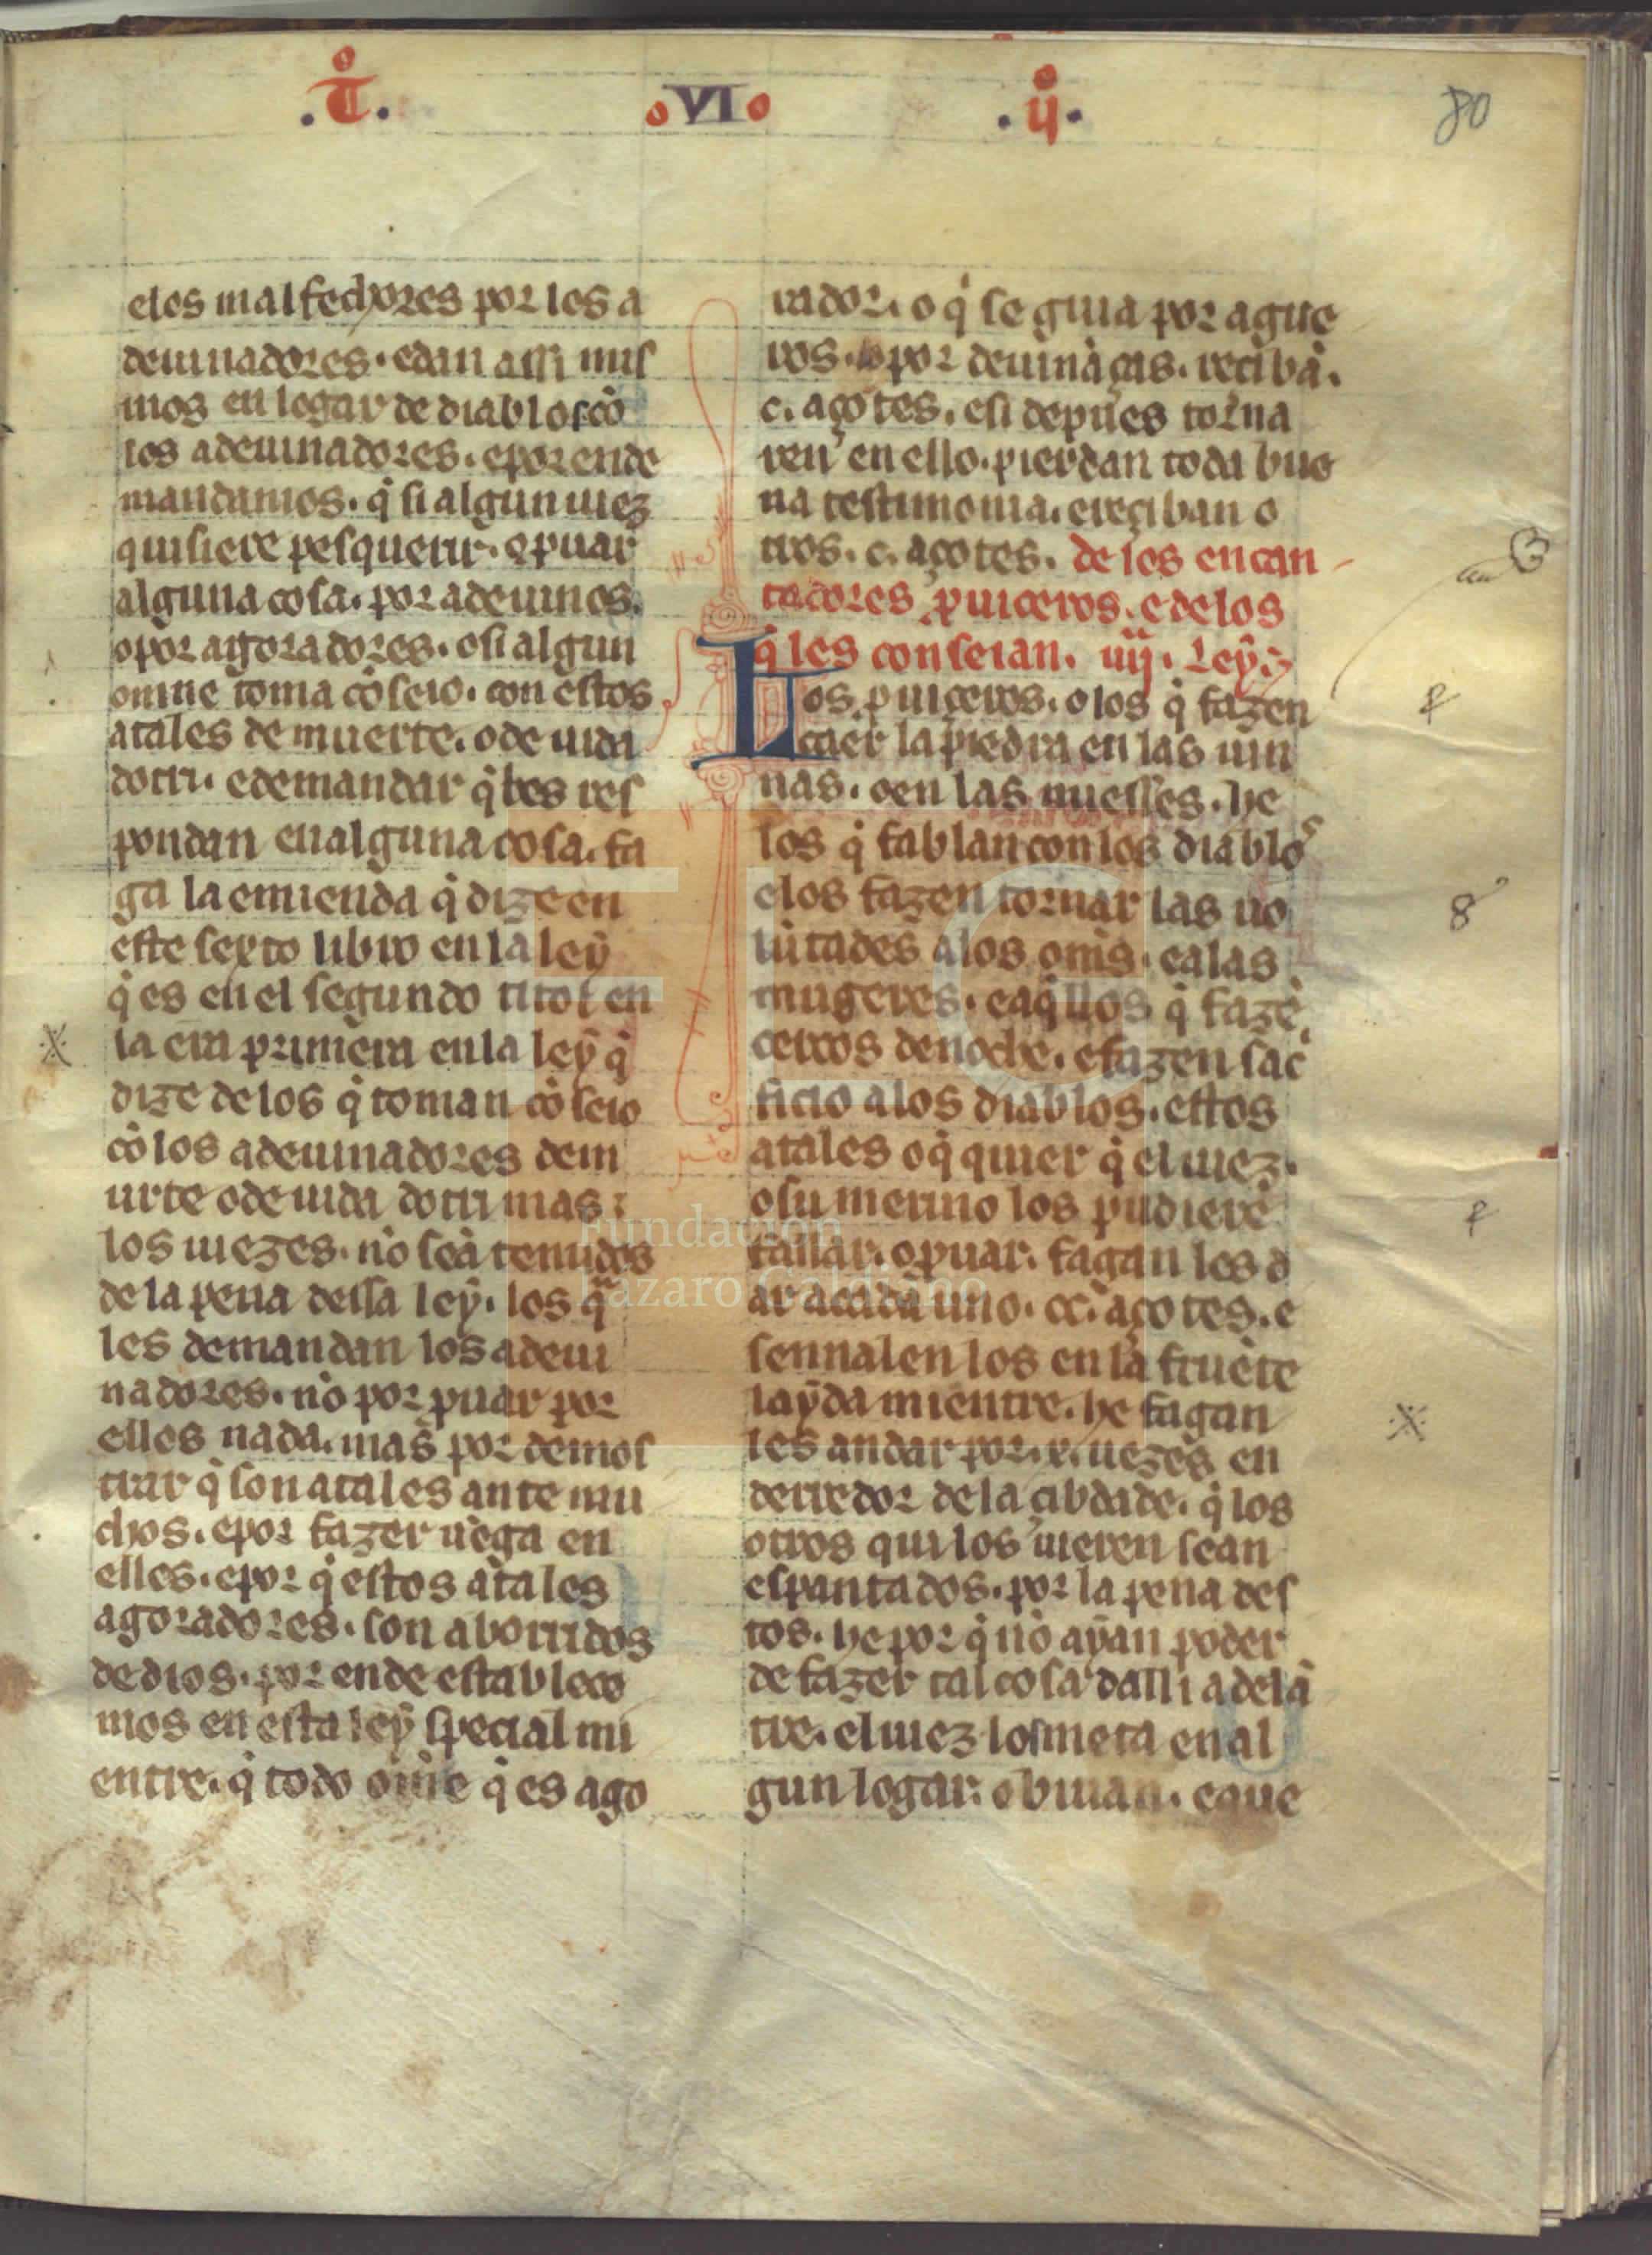 .T. VI .ij. 80
elos malfechores por los a
deuinadores. edan assi mis
mos en logar de diablos cõ
los adeuinadores. eporende
mandamos. q̇ si algun iuez
quisiere pesquerir. o ꝓuar
alguna cosa. por adeuinos.
o por agoradores. o si algun
omne toma cõseio. con estos
atales de muerte. o de uida
dotri. edemandar q̇ les res
pondan en alguna cosa. fa
ga la emienda q̇ dize en
este sexto libro en la ley
q̇ es en el segundo titol en
la era primera en la ley q̇
dize de los q̇ toman cõseio
cõ los adeuinadores dem
uerte o de uida dotri mas
los iuezes. nõ seã tenudos
de la pena dessa ley. los q̃
les demandan los adeui
nadores. nõ por ꝓuar por
elles nada. mas por demos
trar q̇ son atales ante mu
chos. epor fazer uẽga en
elles. epor q̇ estos atales
agoradores. son aborridos
de dios. por ende establece
mos en esta ley special mi
entre. q̇ todo omne q̇ es ago
rador. o q̇ se guia por ague
ros. o por deuinãças. recibã.
c. açotes. esi depues torna
ren en ello. pierdan toda bue
na testimonia. ereçiban o
tros. c. açotes. de los encan
tadores ꝓuiceros. e de los
q̇ les conseian. iiij. Ley.
Los ꝓuiceros. o los q̇ fazen
caer la piedra en las uin
nas. o en las miesses. he
los q̇ fablan con los diablos
elos fazen tornar las uo
lũtades a los om̃s. e a las
mugeres. e aq̇llos q̇ fazẽ
cercos de noche. e fazen sac̓
ficio a los diablos. estos
atales o q̇ quier q̇ el iuez.
o su merino los pudierẽ
fallar. o ꝓuar. fagan los d
ar a cada uno. cc. açotes. e
sennalen los en la fruẽte
layda mientre. he fagan
les andar por. x. uezes en
derredor de la cibdade. q̇ los
otros qui los uieren sean
espantados. por la pena des
tos. he por q̇ nõ ayan poder
de fazer tal cosa dalli adelã
tre. el iuez los meta en al
gun logar. o biuan. e que
Fundación
Lázaro Galdiano